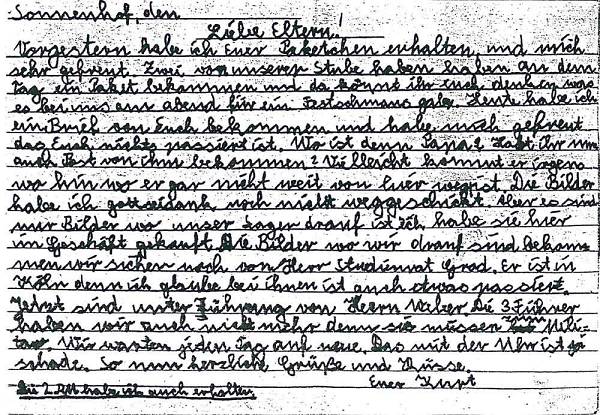 Sonnenhof, den
Liebe Eltern!
Vorgestern habe ich Euer Paketchen erhalten, und mich
sehr gefreut. Zwei von unserer Stube haben haben an dem
Tag ein Paket bekommen und da könnt ihr euch denken was
es bei uns am abend für ein Festschmaus gabe. Heute habe ich
ein Brief von Euch bekommen und habe mich gefreut
das Euch nichts passiert ist. Wo ist denn Papa? Habt ihr nun
auch Post von ihm bekommen? Vielleicht kommt er irgens
wo hin wo er gar nicht weit von Euer weg ist. Die Bilder
habe ich gottseidank noch nicht weggeschickt. Aber es sind
nur Bilder wo unser Lager drauf ist ich habe sie hier
im Geschäft gekauft. Die Bilder wo wir drauf sind bekom
men wir sicher noch von Herr Studienrat Grad. Er ist in
Köln denn ich glaube bei ihnen ist auch etwas passiert.
Jetzt sind unter Führung von Herrn Weber. Die 3 Führer
haben wir auch nicht mehr denn sie müssen zum Mili-
tär. Wir warten jeden Tag auf neue. Das mit der Uhr ist ja
schade. So nun herzliche Grüße und Küsse.
Euer Kurt
Die 2 RM habe ich auch erhalten.